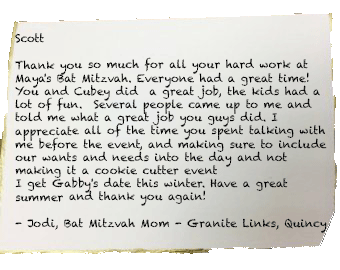 Scott
Thank you so much for all your hard work at
Maya's Bat Mitzvah. Everyone had a great time!
You and Cubey did a great job, the kids had a
lot of fun. Several people came up to me and
told me what a great job you guys did. I
appreciate all of the time you spent talking with
me before the event, and making sure to include
our wants and needs into the day and not
making it a cookie cutter event
I get Gabby's date this winter. Have a great
summer and thank you again!
- Jodi, Bat Mitzvah Mom - Granite Links, Quincy